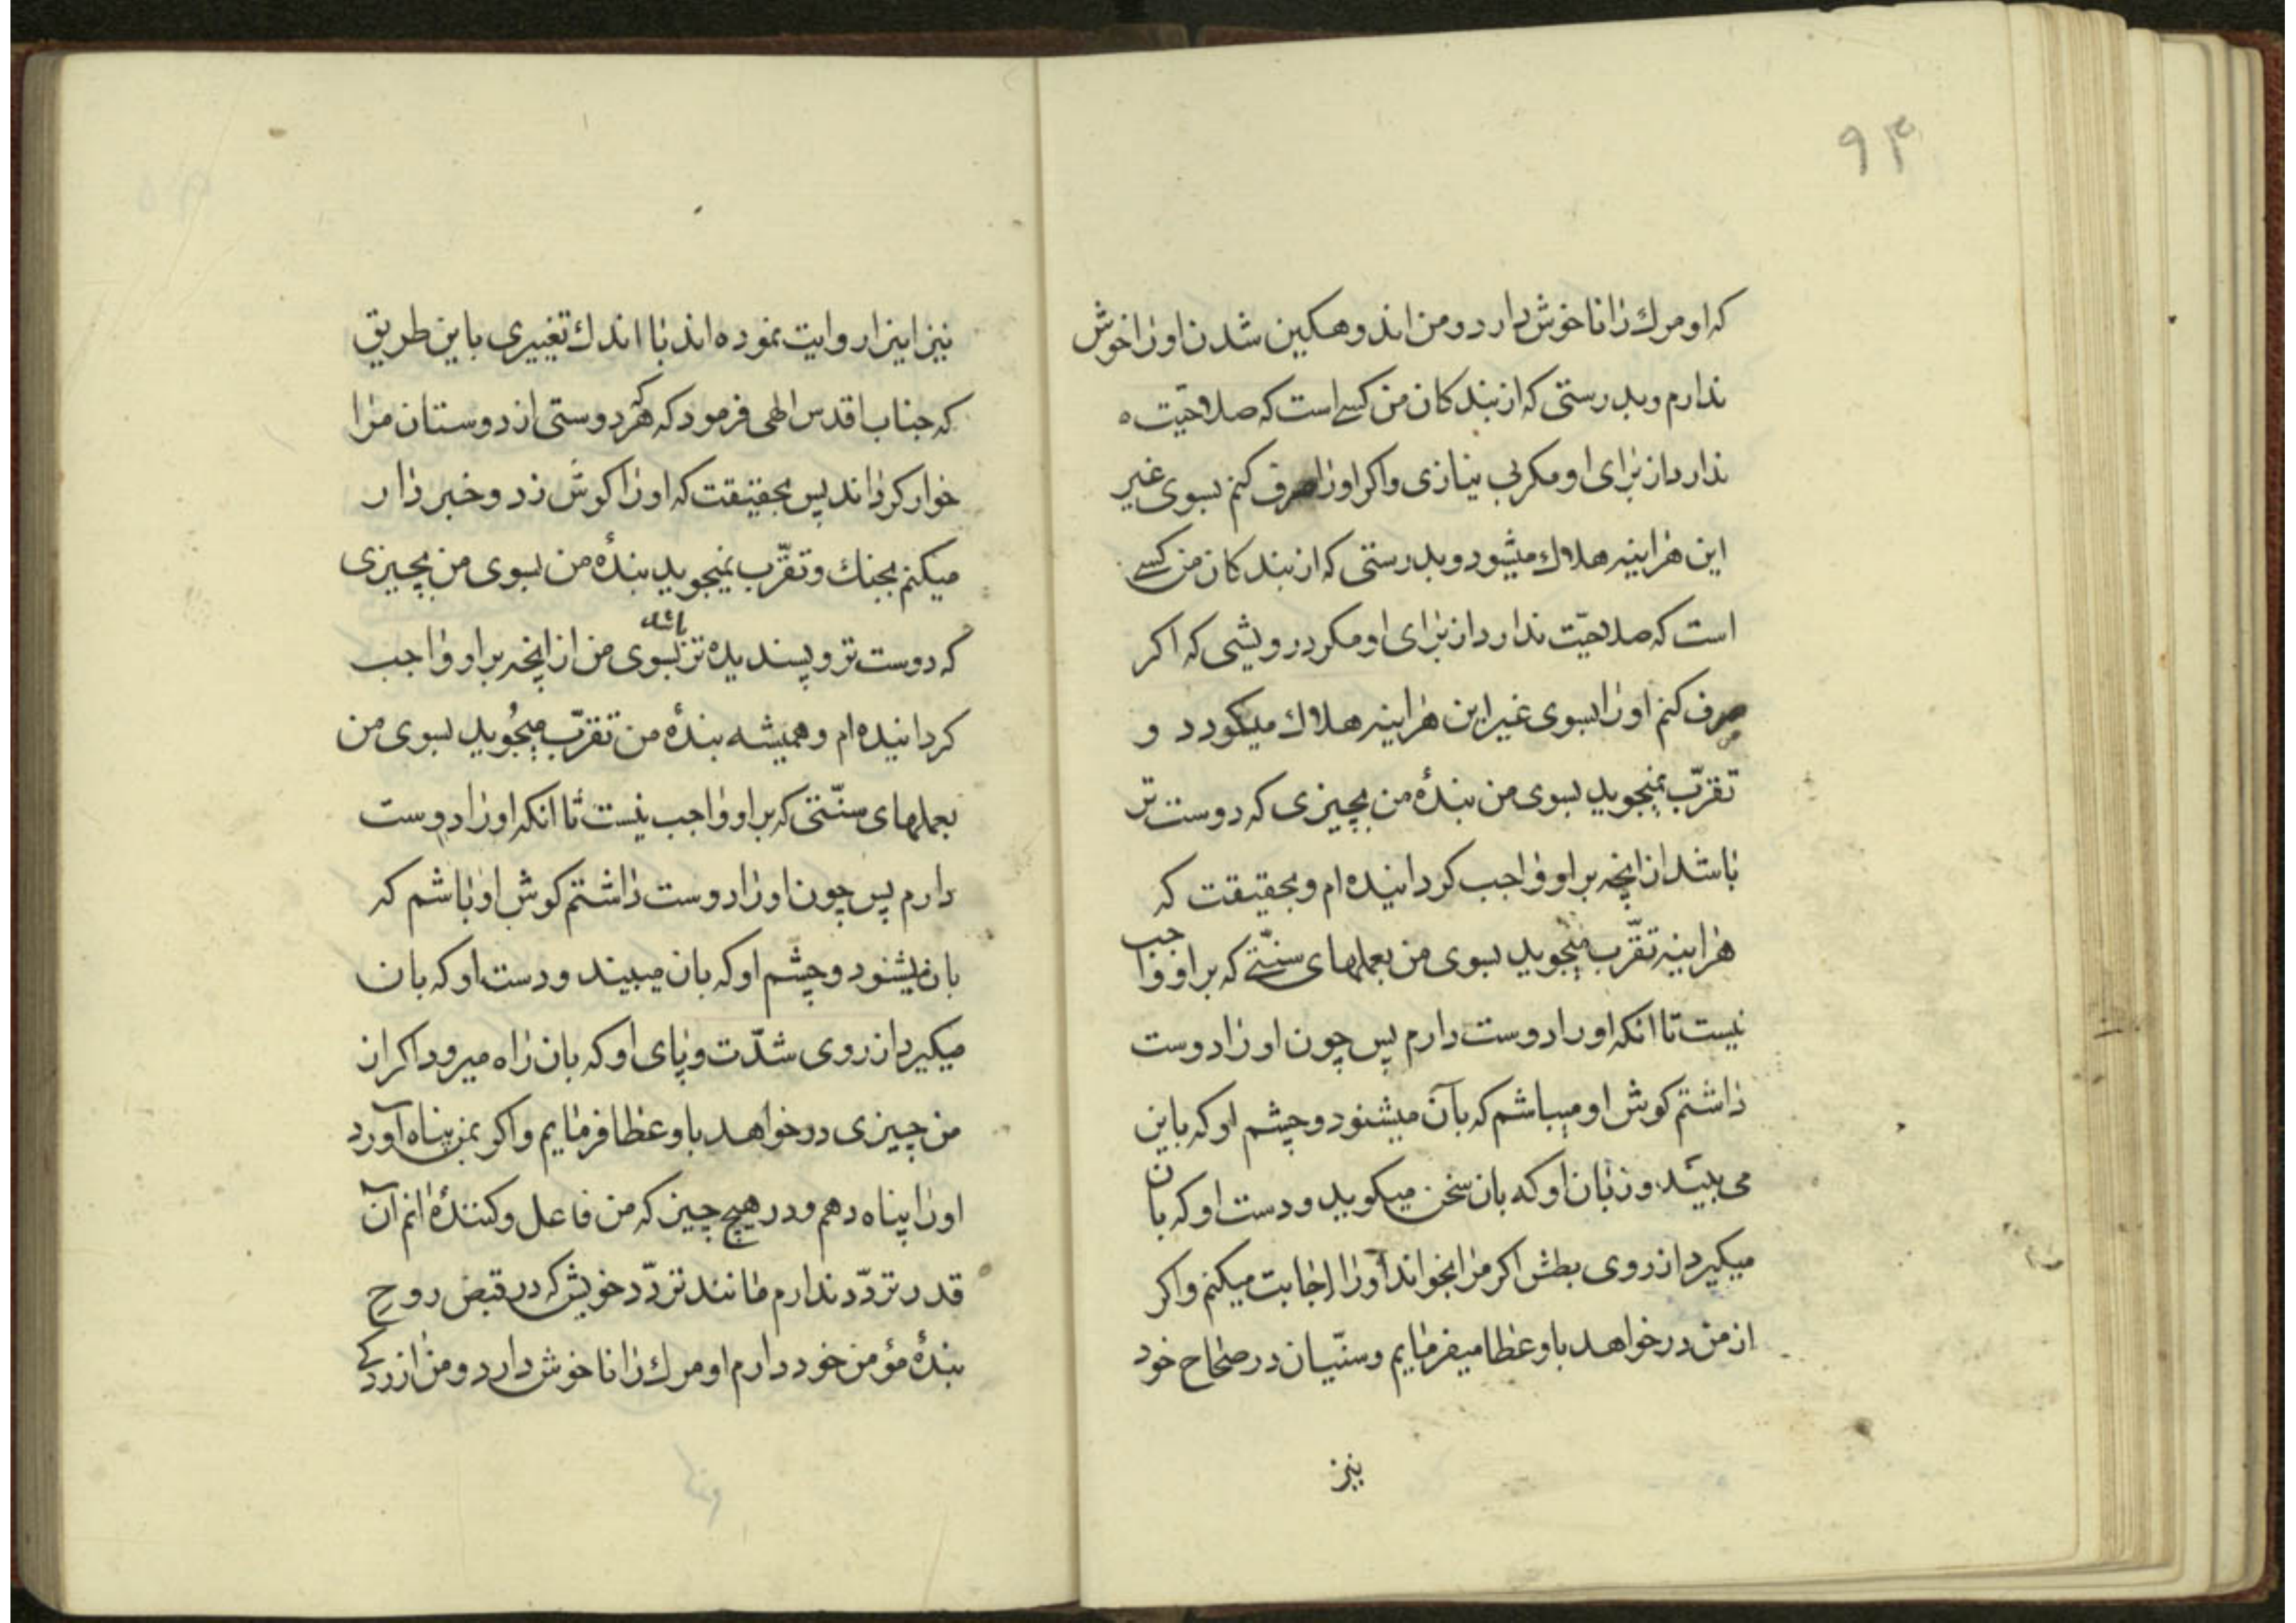 ۹۴
که او مرك را ناخوش دارد و من اندوهكين شدن او را خوش
ندارم و بدرستی که از بندکان من کسے است که صلاحیّت
ندارد از برای او مکر بی نیازی و اکر او را صرف کنم بسوی غیر
این هراینه هلاك میشود و بدرستی که از بندکان من کسے
است که صلاحیّت ندارد از برای او مکر درویشی که اکر
صرف کنم او را بسوی غیر این هراینه هلاك میکردد و
تقرّب نمیجوید بسوی من بندهٔ من بچیزی که دوست تر
باشد از انچه بر او واجب کردانیده ام و بحقیقت که
هراینه تقرّب میجوید بسوی من بعملهای سنّتے که بر او واجب
نیست تا انکه او را دوست دارم پس چون او را دوست
داشتم کوش او میباشم که بآن میشنود و چشم او که باین
می بیند و زبان او که بان سخن میکوید و دست او که بان
میکیرد از روی بطش اکر مرا بخواند او را اجابت میکنم و اکر
از من درخواهد باو عطا میفرمایم و سنّیان در صحاح خود
نیز
نیز اینرا روایت نموده اند با اندك تغییری باین طریق
که جناب اقدس الهی فرمود که هر که دوستی از دوستان مرا
خوار کرداند پس بحقیقت که او را کوش زد و خبر دار
میکنم بجنك و تقرّب نمیجوید بندهٔ من بسوی من بچیزی
که دوست تر و پسندیده تر باشد بسوی من از انچه بر او واجب
کردانیده ام و همیشه بندهٔ من تقرّب میجُوید بسوی من
بعملهای سنّتی که بر او واجب نیست تا انکه او را دوست
دارم پس چون او را دوست داشتم کوش او باشم که
بان میشنود و چشم او که بان میبیند و دست او که بان
میکیرد از روی شدّت و پای او که بان راه میرود اکر از
من چیزی درخواهد باو عطا فرمایم و اکر بمن پناه آورد
او را پناه دهم و در هیچ چیز که من فاعل و کنندهٔ انم آن
قدر تردّد ندارم مانند تردّد خویش که در قبض روحِ
بندهٔ مؤمن خود دارم او مرك را ناخوش دارد و من ازردکے